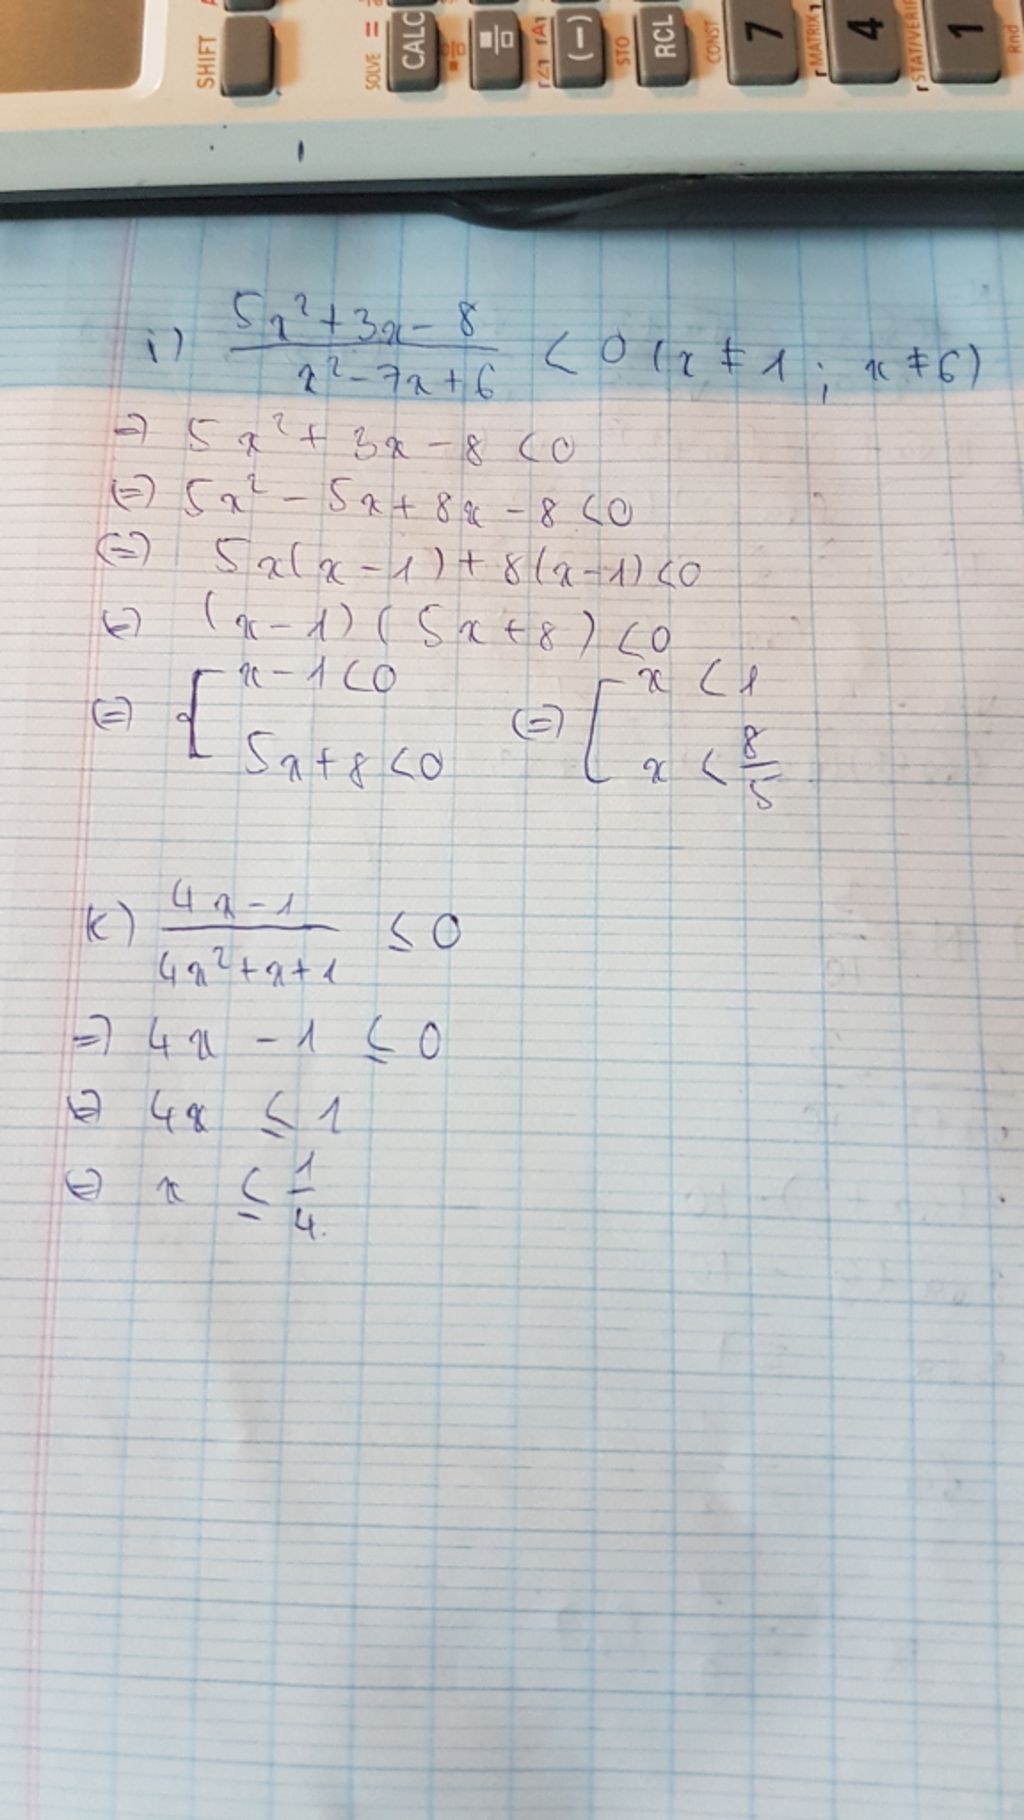 SHIFT SOLVE = CALC (−) STO RCL CONST 7 MATRIX 4 STAT/VERIF 1 Rnd
i) (5x² + 3x − 8)/(x² − 7x + 6) < 0 (x ≠ 1 ; x ≠ 6)
=> 5x² + 3x − 8 < 0
(=) 5x² − 5x + 8x − 8 < 0
(=) 5x(x − 1) + 8(x − 1) < 0
(=) (x − 1)(5x + 8) < 0
(=) [ x − 1 < 0 (=) [ x < 1
5x + 8 < 0 x < 8/5
k) (4x − 1)/(4x² + x + 1) ≤ 0
=> 4x − 1 ≤ 0
(=) 4x ≤ 1
(=) x ≤ 1/4.